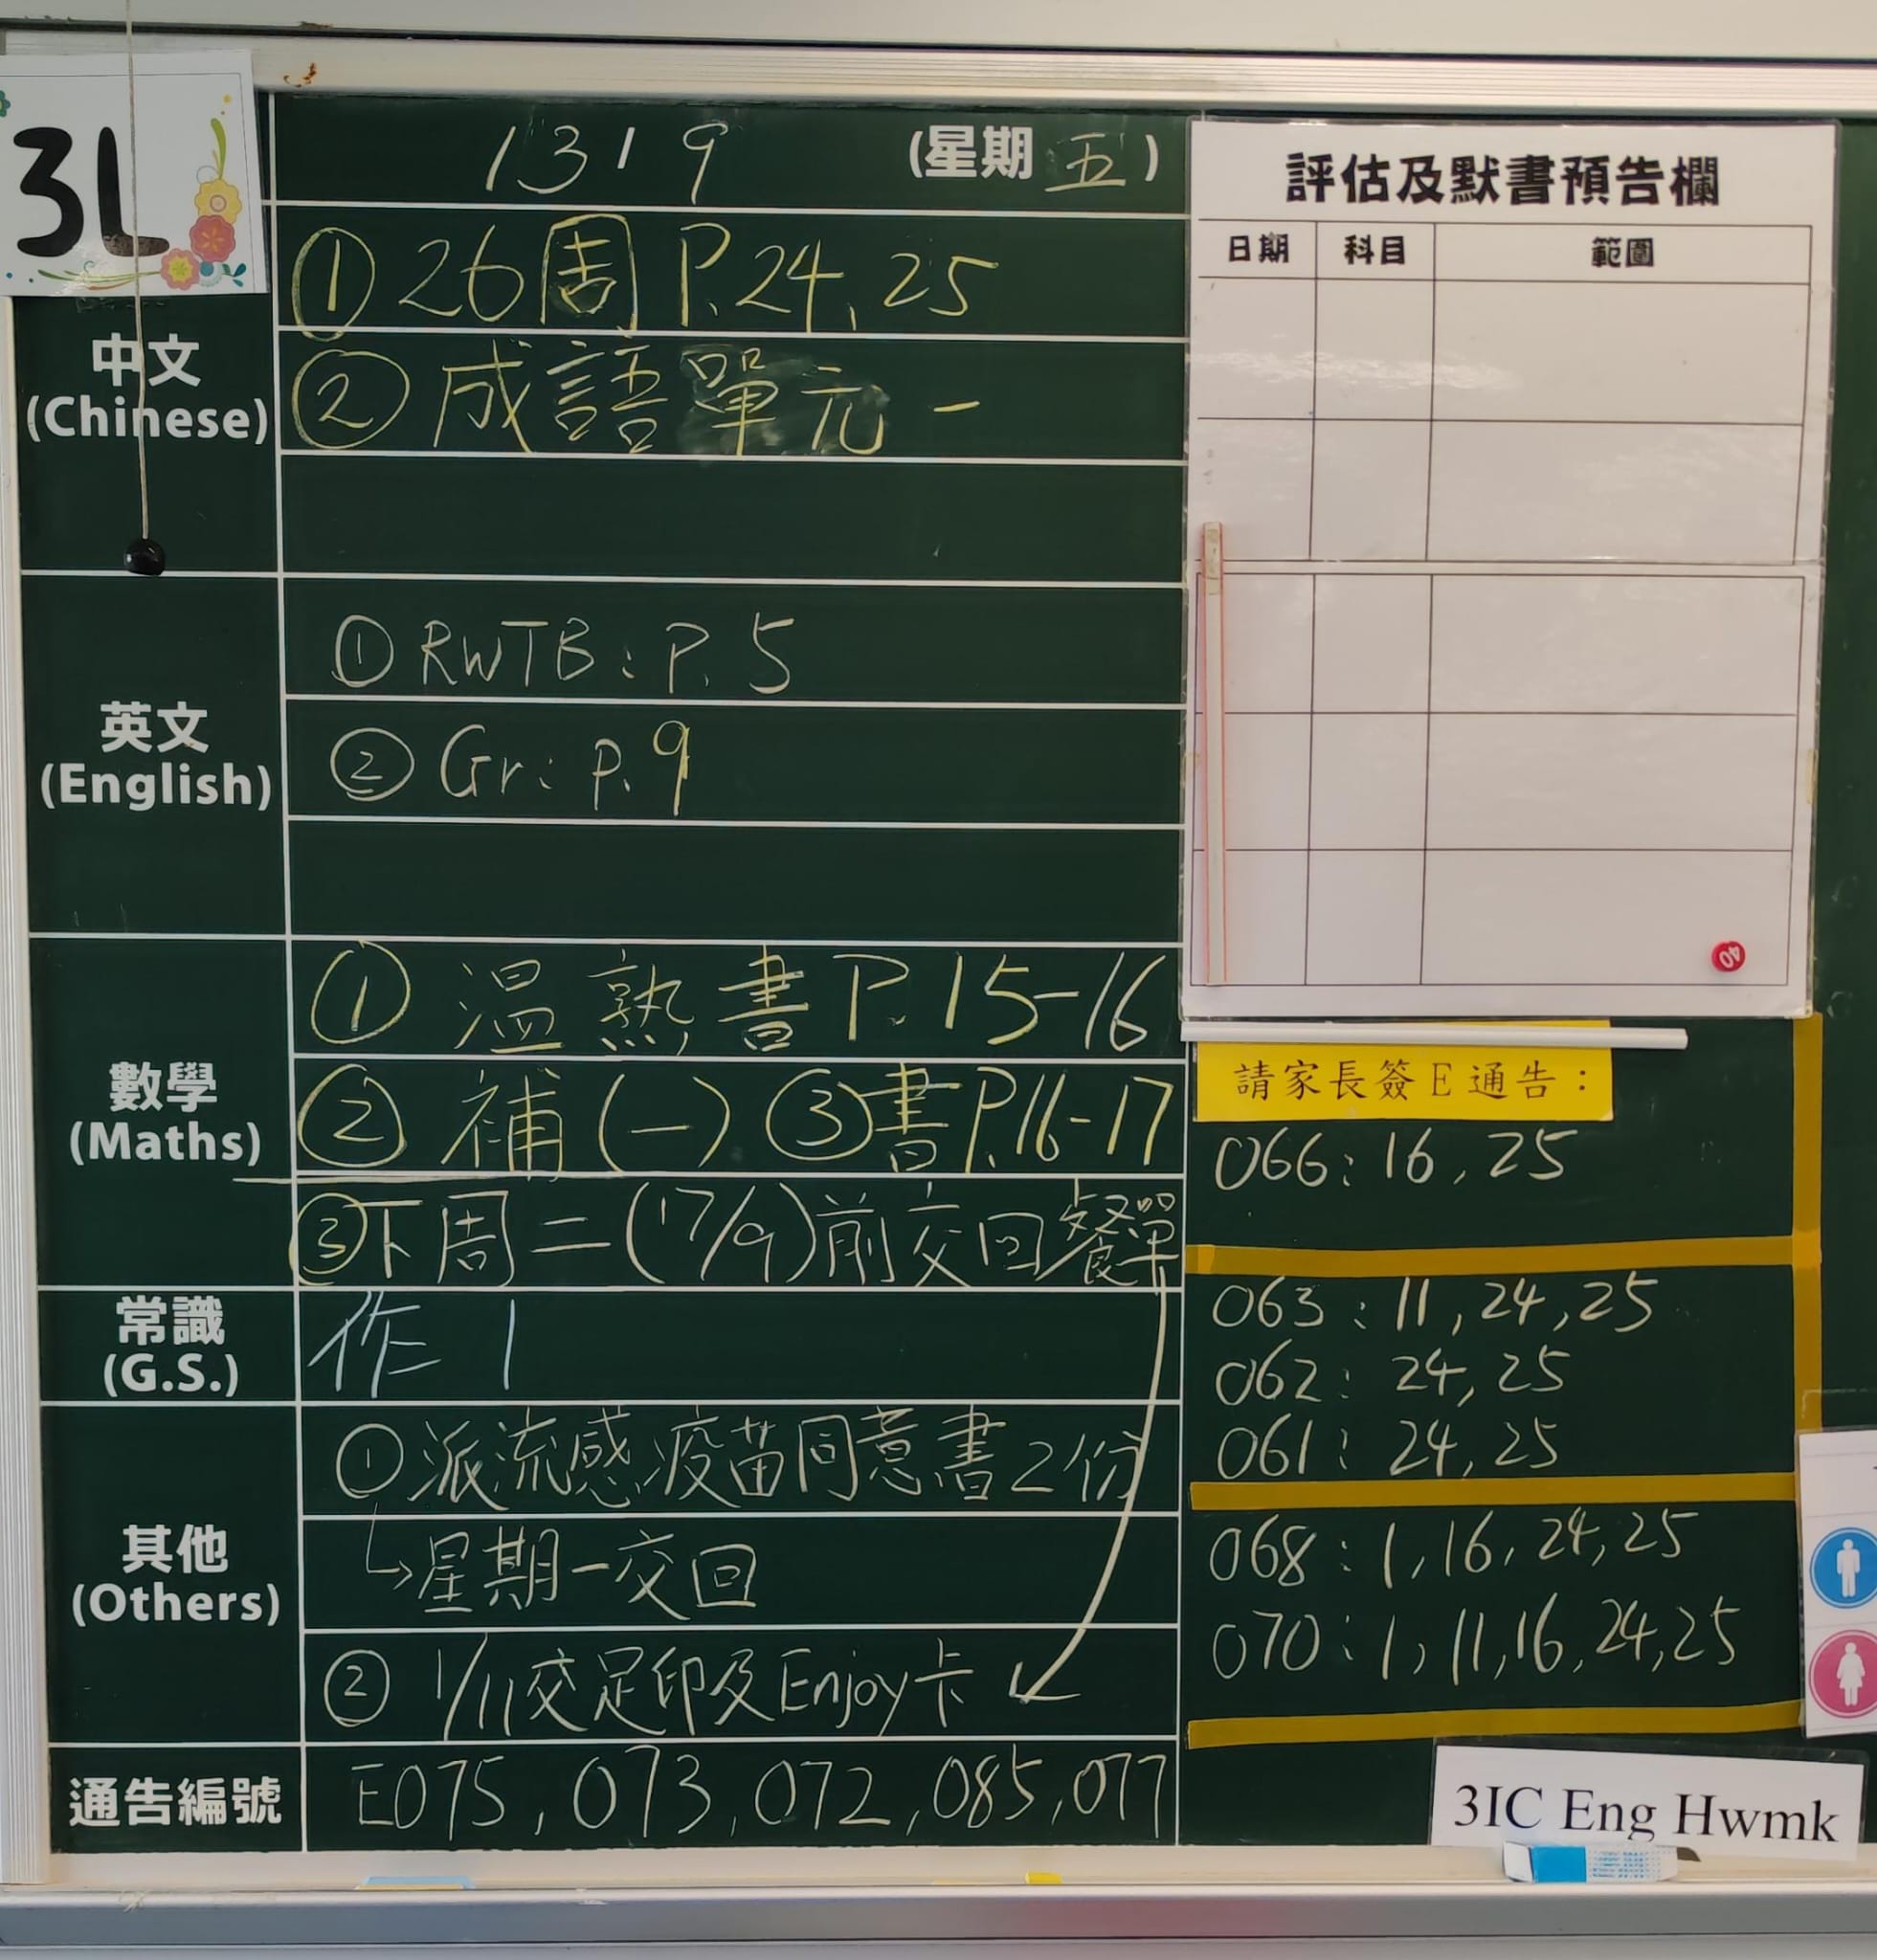 3L
13/9 (星期五)
中文
(Chinese)
① 26周 P.24, 25
② 成語單元一
英文
(English)
① RWTB: P.5
② Gr: p.9
數學
(Maths)
① 温熟書 P.15-16
② 補(一) ③書P.16-17
③下周二(17/9)前交回餐單
常識
(G.S.)
作 1
其他
(Others)
①派流感疫苗同意書2份
↳星期一交回
② 1/11交足印及Enjoy卡
通告編號
E075, 073, 072, 085, 077
評估及默書預告欄
日期 科目 範圍
請家長簽E通告：
066: 16, 25
063: 11, 24, 25
062: 24, 25
061: 24, 25
068: 1, 16, 24, 25
070: 1, 11, 16, 24, 25
3IC Eng Hwmk